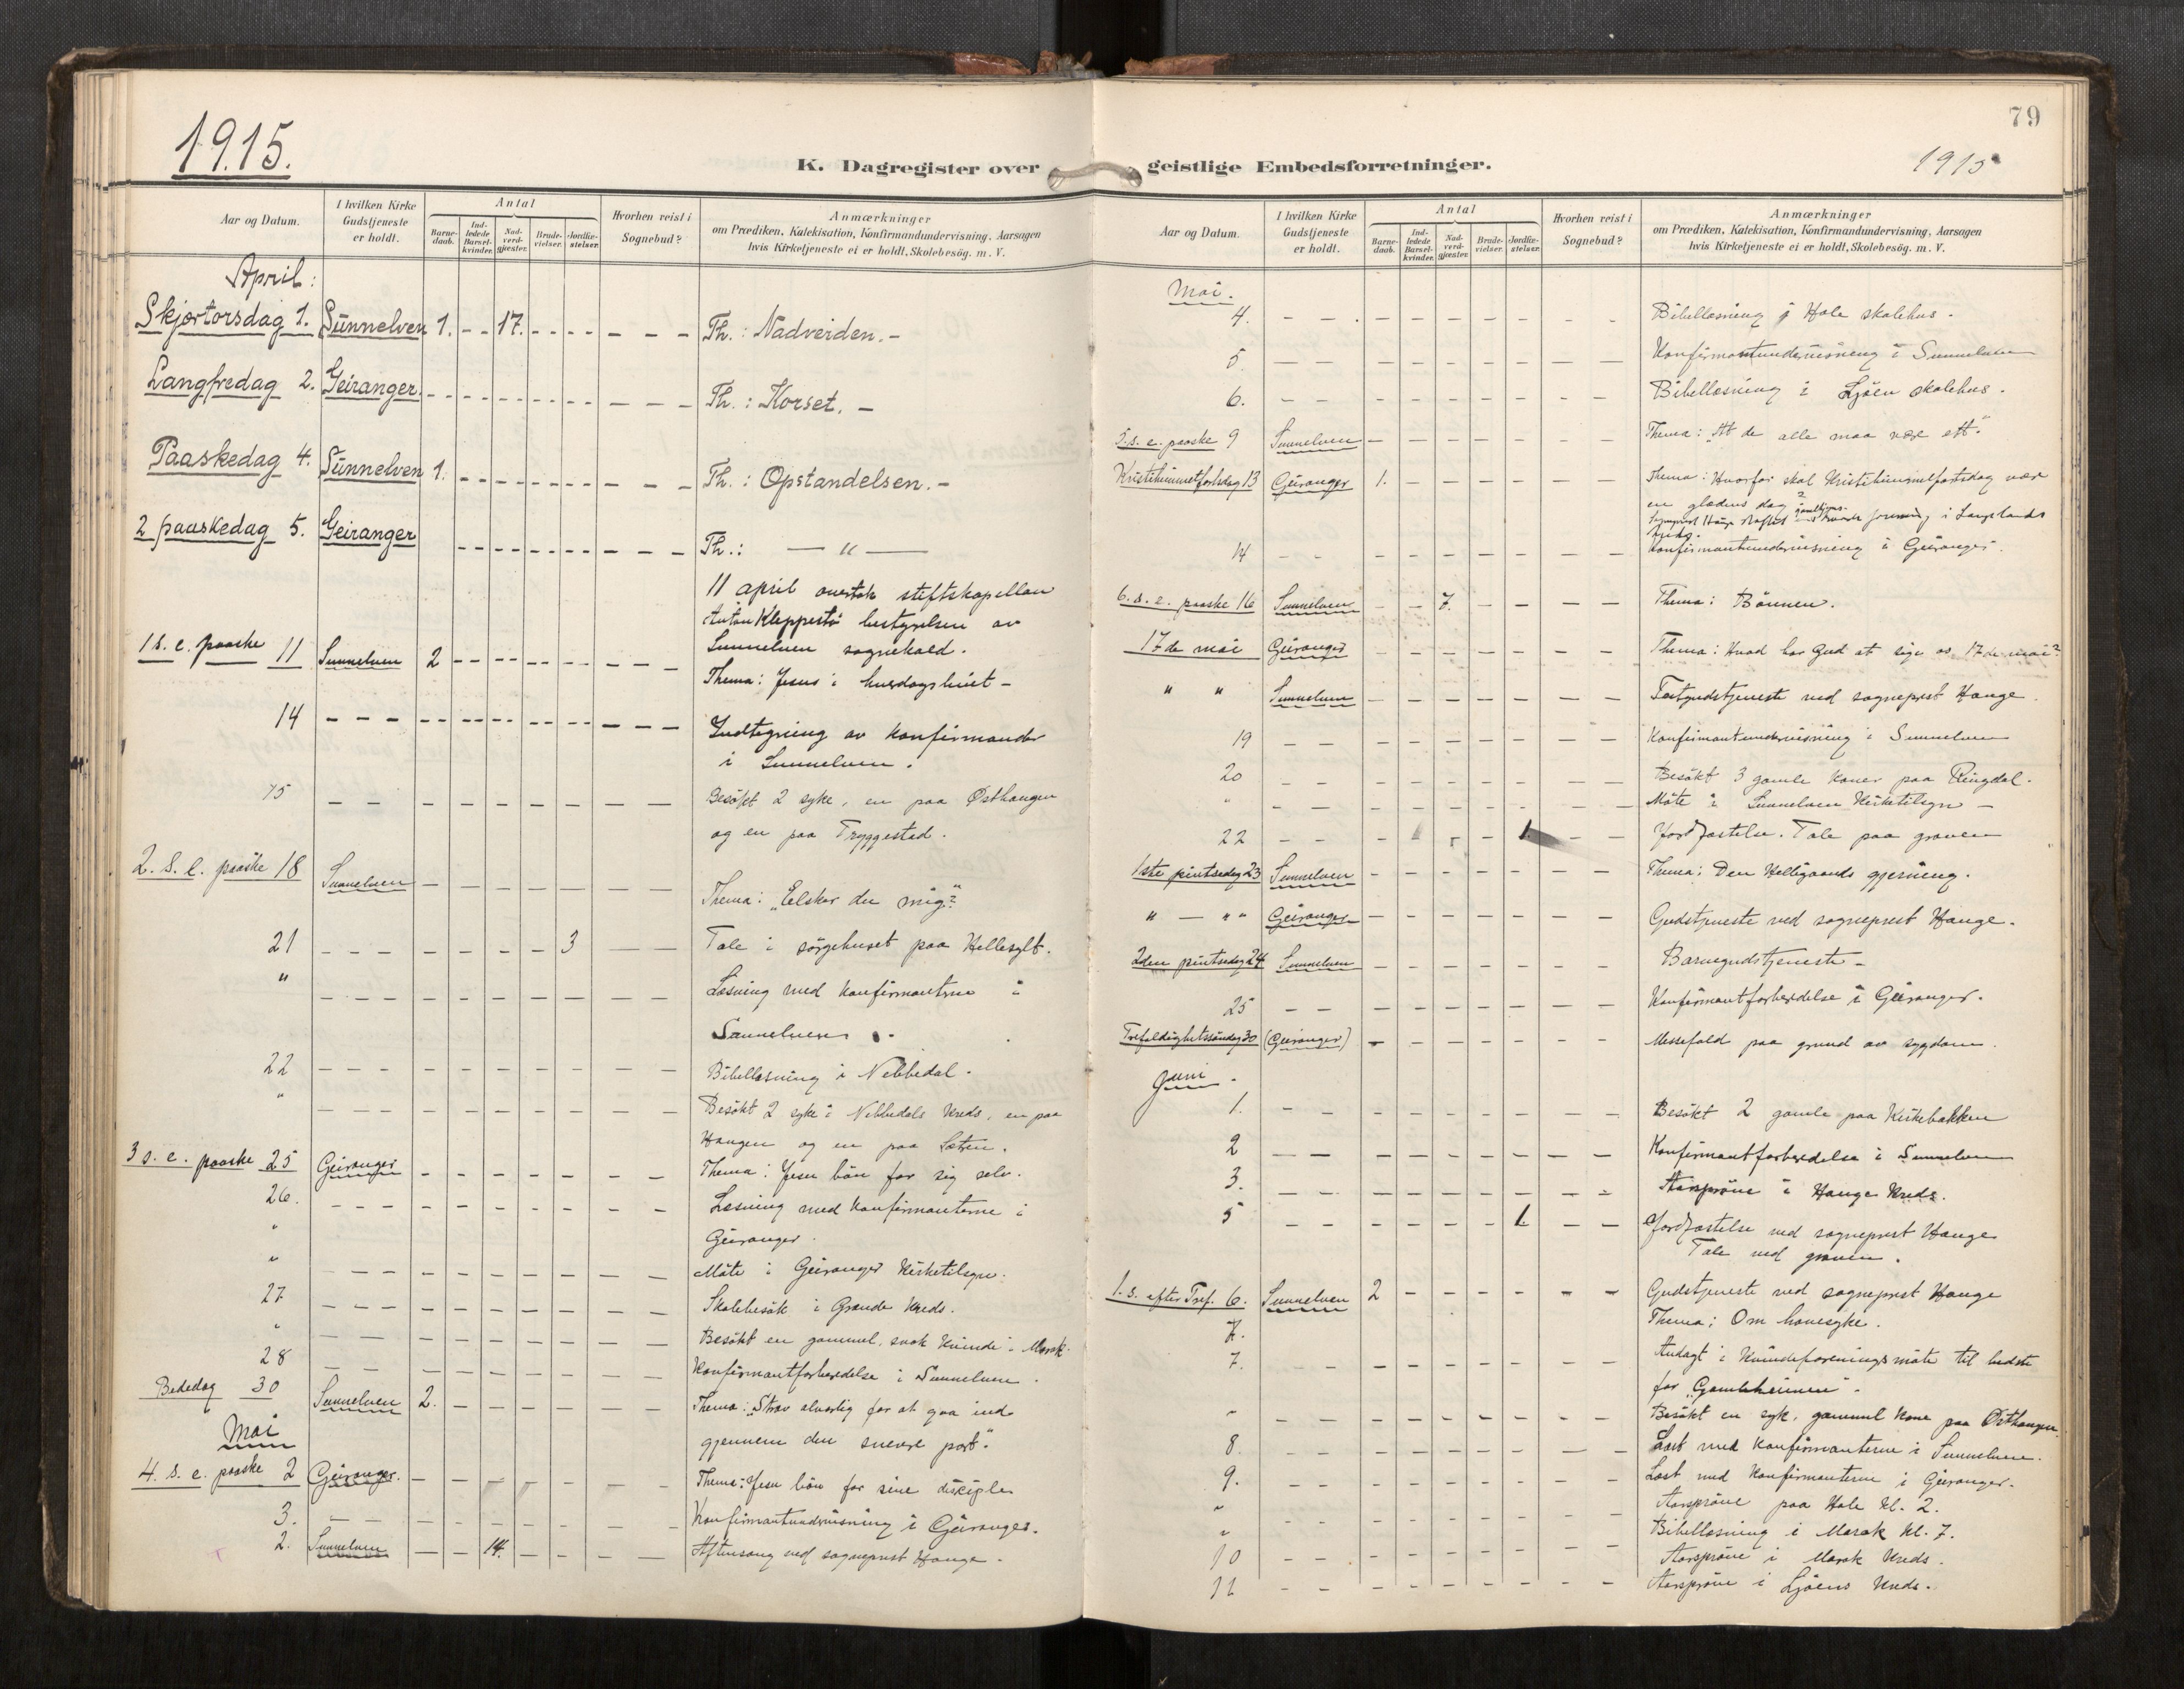 1915.
K. Dagregister over
Aar og Datum.
I hvilken Kirke Gudstjeneste er holdt.
Antal
Barne-daab.
Ind-ledede Barsel-kvinder.
Nad-verd-gjæster.
Brude-vielser.
Jordfæ-stelser.
Hvorhen reist i Sognebud?
Anmærkninger
om Prædiken, Katekisation, Konfirmandundervisning, Aarsagen
hvis Kirketjeneste ei er holdt, Skolebesög. m. V.
April:
Skjærtorsdag 1. Sunnelven 1. - - 17. - - - - - - - Th.: Nadverden. -
Langfredag 2. Geiranger. - - - - - - - - Th.: Korset. -
Paaskedag 4. Sunnelven 1. - - - - - - - - Th.: Opstandelsen. -
2 paaskedag 5. Geiranger - - - - - - - - Th.: — " —
11 april overtok stiftskapellan
Anton Kleppestø bestyrelsen av
Sunnelven sognekald.
1 s. e. paaske 11 Sunnelven 2 - - - - - - - Thema: Jesus i hverdagslivet -
14 - - - - - - - - - Indtegning av konfirmander
i Sunnelven.
15 - - - - - - - - - Besøkt 2 syke, en paa Østhaugen
og en paa Tryggestad.
2. s. e. paaske 18 Sunnelven - - - - - - - Thema: „Elsker du mig?"
21 - - - - - - - 3 - - Tale i sørgehuset paa Hellesylt.
" - - - - - - - - - Læsning med konfirmanterne i
Sunnelven.
22 - - - - - - - - - Bibellæsning i Nebbedal.
" - - - - - - - - - Besøkt 2 syke i Nebbedals kreds, en paa
Haugen og en paa Sætren.
3 s. e. paaske 25 Geiranger - - - - - - - Thema: Jesu bön for sig selv.
26. - - - - - - - - - Læsning med konfirmanterne i
" Geiranger.
" - - - - - - - - - Møte i Geiranger kirketilsyn.
27 - - - - - - - - - Skolebesøk i Grande kreds.
" - - - - - - - - - Besøkt en gammel, svak kvinde i Marok.
28 - - - - - - - - - Konfirmantforberedelse i Sunnelven.
Bededag 30 Sunnelven 2. - - - - - - Thema: „Stræv alvorlig for at gaa ind
Mai
gjennem den snevre port".
4. s. e. paaske 2 Geiranger. - - - - - - - Thema: Jesu bön for sine disciple
3. - - - - - - - - - Konfirmantundervisning i Geiranger.
2. Sunnelven - - 14. - - - - Aftensang ved sogneprest Hauge.
79
geistlige Embedsforretninger.
1915
Aar og Datum.
I hvilken Kirke Gudstjeneste er holdt.
Antal
Barne-daab.
Ind-ledede Barsel-kvinder.
Nad-verd-gjæster.
Brude-vielser.
Jordfæ-stelser.
Hvorhen reist i Sognebud?
Anmærkninger
om Prædiken, Katekisation, Konfirmandundervisning, Aarsagen
hvis Kirketjeneste ei er holdt, Skolebesög. m. V.
Mai.
4. - - - - - - - - - Bibellæsning i Hole skolehus.
5. - - - - - - - - - Konfirmantundervisning i Sunnelven
6. - - - - - - - - - Bibellæsning i Ljøen skolehus.
5. s. e. paaske 9 Sunnelven - - - - - - - Thema: „At de alle maa være ett".
Kristihimmelfartsdag 13 Geiranger 1. - - - - - - Thema: Hvorfor skal Kristihimmelfartsdag være
en glædens dag?
14 - - - - - - - - - Konfirmantundervisning i Geiranger.
6. s. e. paaske 16 Sunnelven - - 7. - - - - Thema: Bönnen.
17de mai Geiranger - - - - - - - Thema: Hvad har Gud at sige os 17de mai?
" " Sunnelven - - - - - - - Festgudstjeneste ved sogneprest Hauge.
19 - - - - - - - - - Konfirmantundervisning i Sunnelven
20 - - - - - - - - - Besøkt 3 gamle koner paa Ringdal.
" - - - - - - - - - Møte i Sunnelven kirketilsyn -
22 - - - - - - 1. - - Jordfæstelse. Tale paa graven
1ste pintsedag 23 Sunnelven - - - - - - - Thema: Den Helligaands gjerning.
" — " " Geiranger - - - - - - - Gudstjeneste ved sogneprest Hauge.
2den pintsedag 24 Sunnelven - - - - - - - Barnegudstjeneste -
25 - - - - - - - - - Konfirmantforberedelse i Geiranger.
Trefoldighetssöndag 30 (Geiranger) - - - - - - - Messefald paa grund av sygdom.
Juni.
1. - - - - - - - - - Besøkt 2 gamle paa Kirkebakken
2 - - - - - - - - - Konfirmantforberedelse i Sunnelven
3. - - - - - - - - - Aarsprøve i Hauge kreds.
5 - - - - - - 1. - - Jordfæstelse ved sogneprest Hauge
Tale ved graven.
1. s. efter Tref. 6. Sunnelven 2 - - - - - - Gudstjeneste ved sogneprest Hauge
7. Thema: Om havesyke.
7. - - - - - - - - - Andagt i kvindeforeningsmøte til bedste
for „Gamleheimen".
" - - - - - - - - - Besøkt en syk, gammel kone paa Østhaugen.
8. - - - - - - - - - Læst med konfirmanterne i Sunnelven.
9. - - - - - - - - - Læst med konfirmanterne i Geiranger.
" Aarsprøve paa Hole kl. 2.
" Bibellæsning i Marok kl. 7.
10 - - - - - - - - - Aarsprøve i Marok kreds.
11 - - - - - - - - - Aarsprøve i Ljøens kreds.